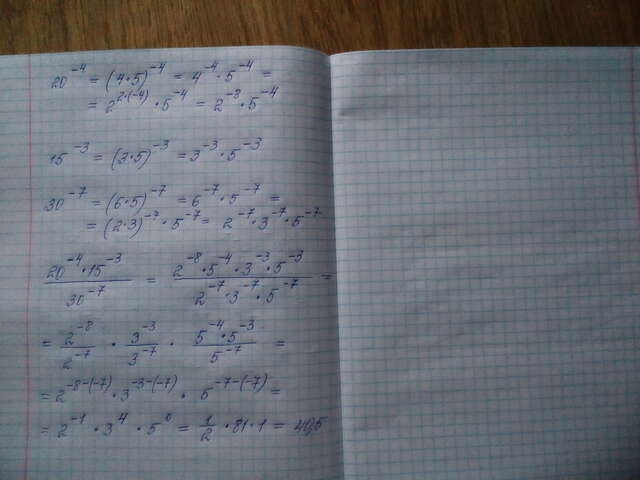 20⁻⁴ = (4·5)⁻⁴ = 4⁻⁴·5⁻⁴ =
= 2^(2·(-4))·5⁻⁴ = 2⁻⁸·5⁻⁴
15⁻³ = (3·5)⁻³ = 3⁻³·5⁻³
30⁻⁷ = (6·5)⁻⁷ = 6⁻⁷·5⁻⁷ =
= (2·3)⁻⁷·5⁻⁷ = 2⁻⁷·3⁻⁷·5⁻⁷
(20⁻⁴·15⁻³)/(30⁻⁷) = (2⁻⁸·5⁻⁴·3⁻³·5⁻³)/(2⁻⁷·3⁻⁷·5⁻⁷) =
= 2⁻⁸/2⁻⁷ · 3⁻³/3⁻⁷ · (5⁻⁴·5⁻³)/5⁻⁷ =
= 2^(-8-(-7))·3^(-3-(-7))·5^(-7-(-7)) =
= 2⁻¹·3⁴·5⁰ = 1/2·81·1 = 40,5